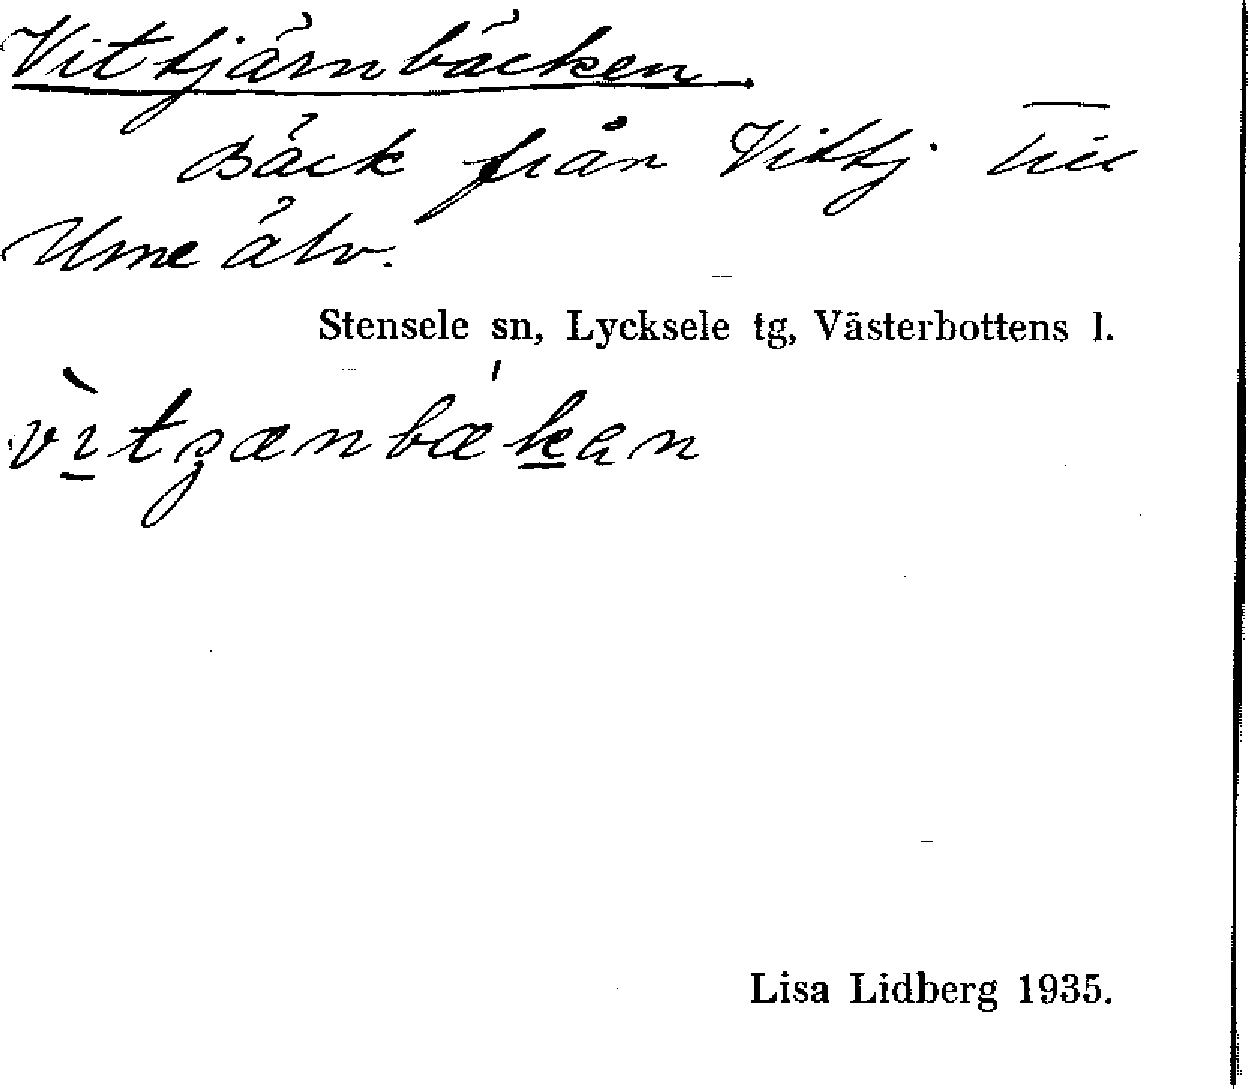 Vittjärnbäcken.
Bäck från Vittj. till
Ume älv.
Stensele sn, Lycksele tg, Västerbottens l.
Lisa Lidberg 1935.